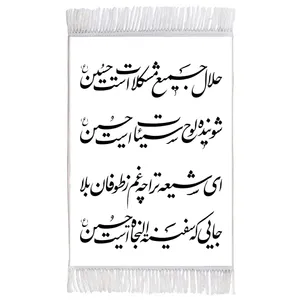 حلال جمیع مشکلات است حسین ع
شوینده لوح سیئات است حسین ع
ای شیعه تو را چه غم ز طوفان بلا
جایی که سفینه النجاة است حسین ع